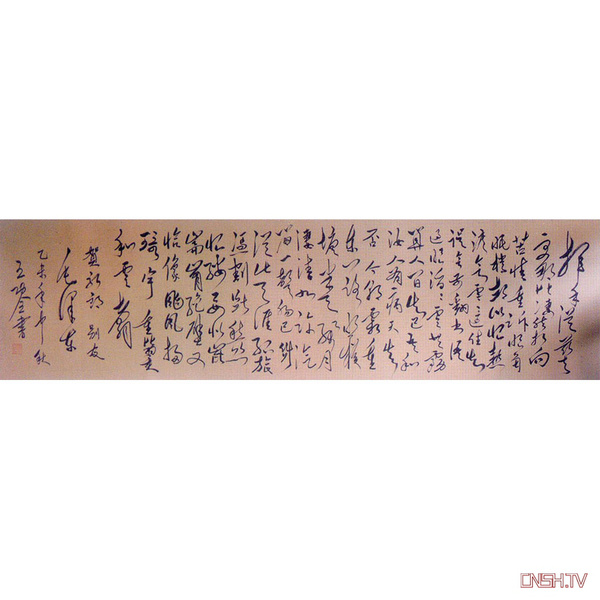 挥手从兹去
更那堪凄然相向
苦情重诉眼角
眉梢都似恨热
泪欲零还住知
误会前翻书语
过眼滔滔云共雾
算人间知己吾和
汝人有病天知
否今朝霜重
东门路照横
塘半天残月
凄清如许汽
笛一声肠已断
从此天涯孤旅
凭割断愁丝
恨缕要似昆
仑崩绝壁又
恰像台风扫
寰宇重比翼
和云翥
贺新郎 别友
毛泽东
乙未年中秋
CNSH.TV